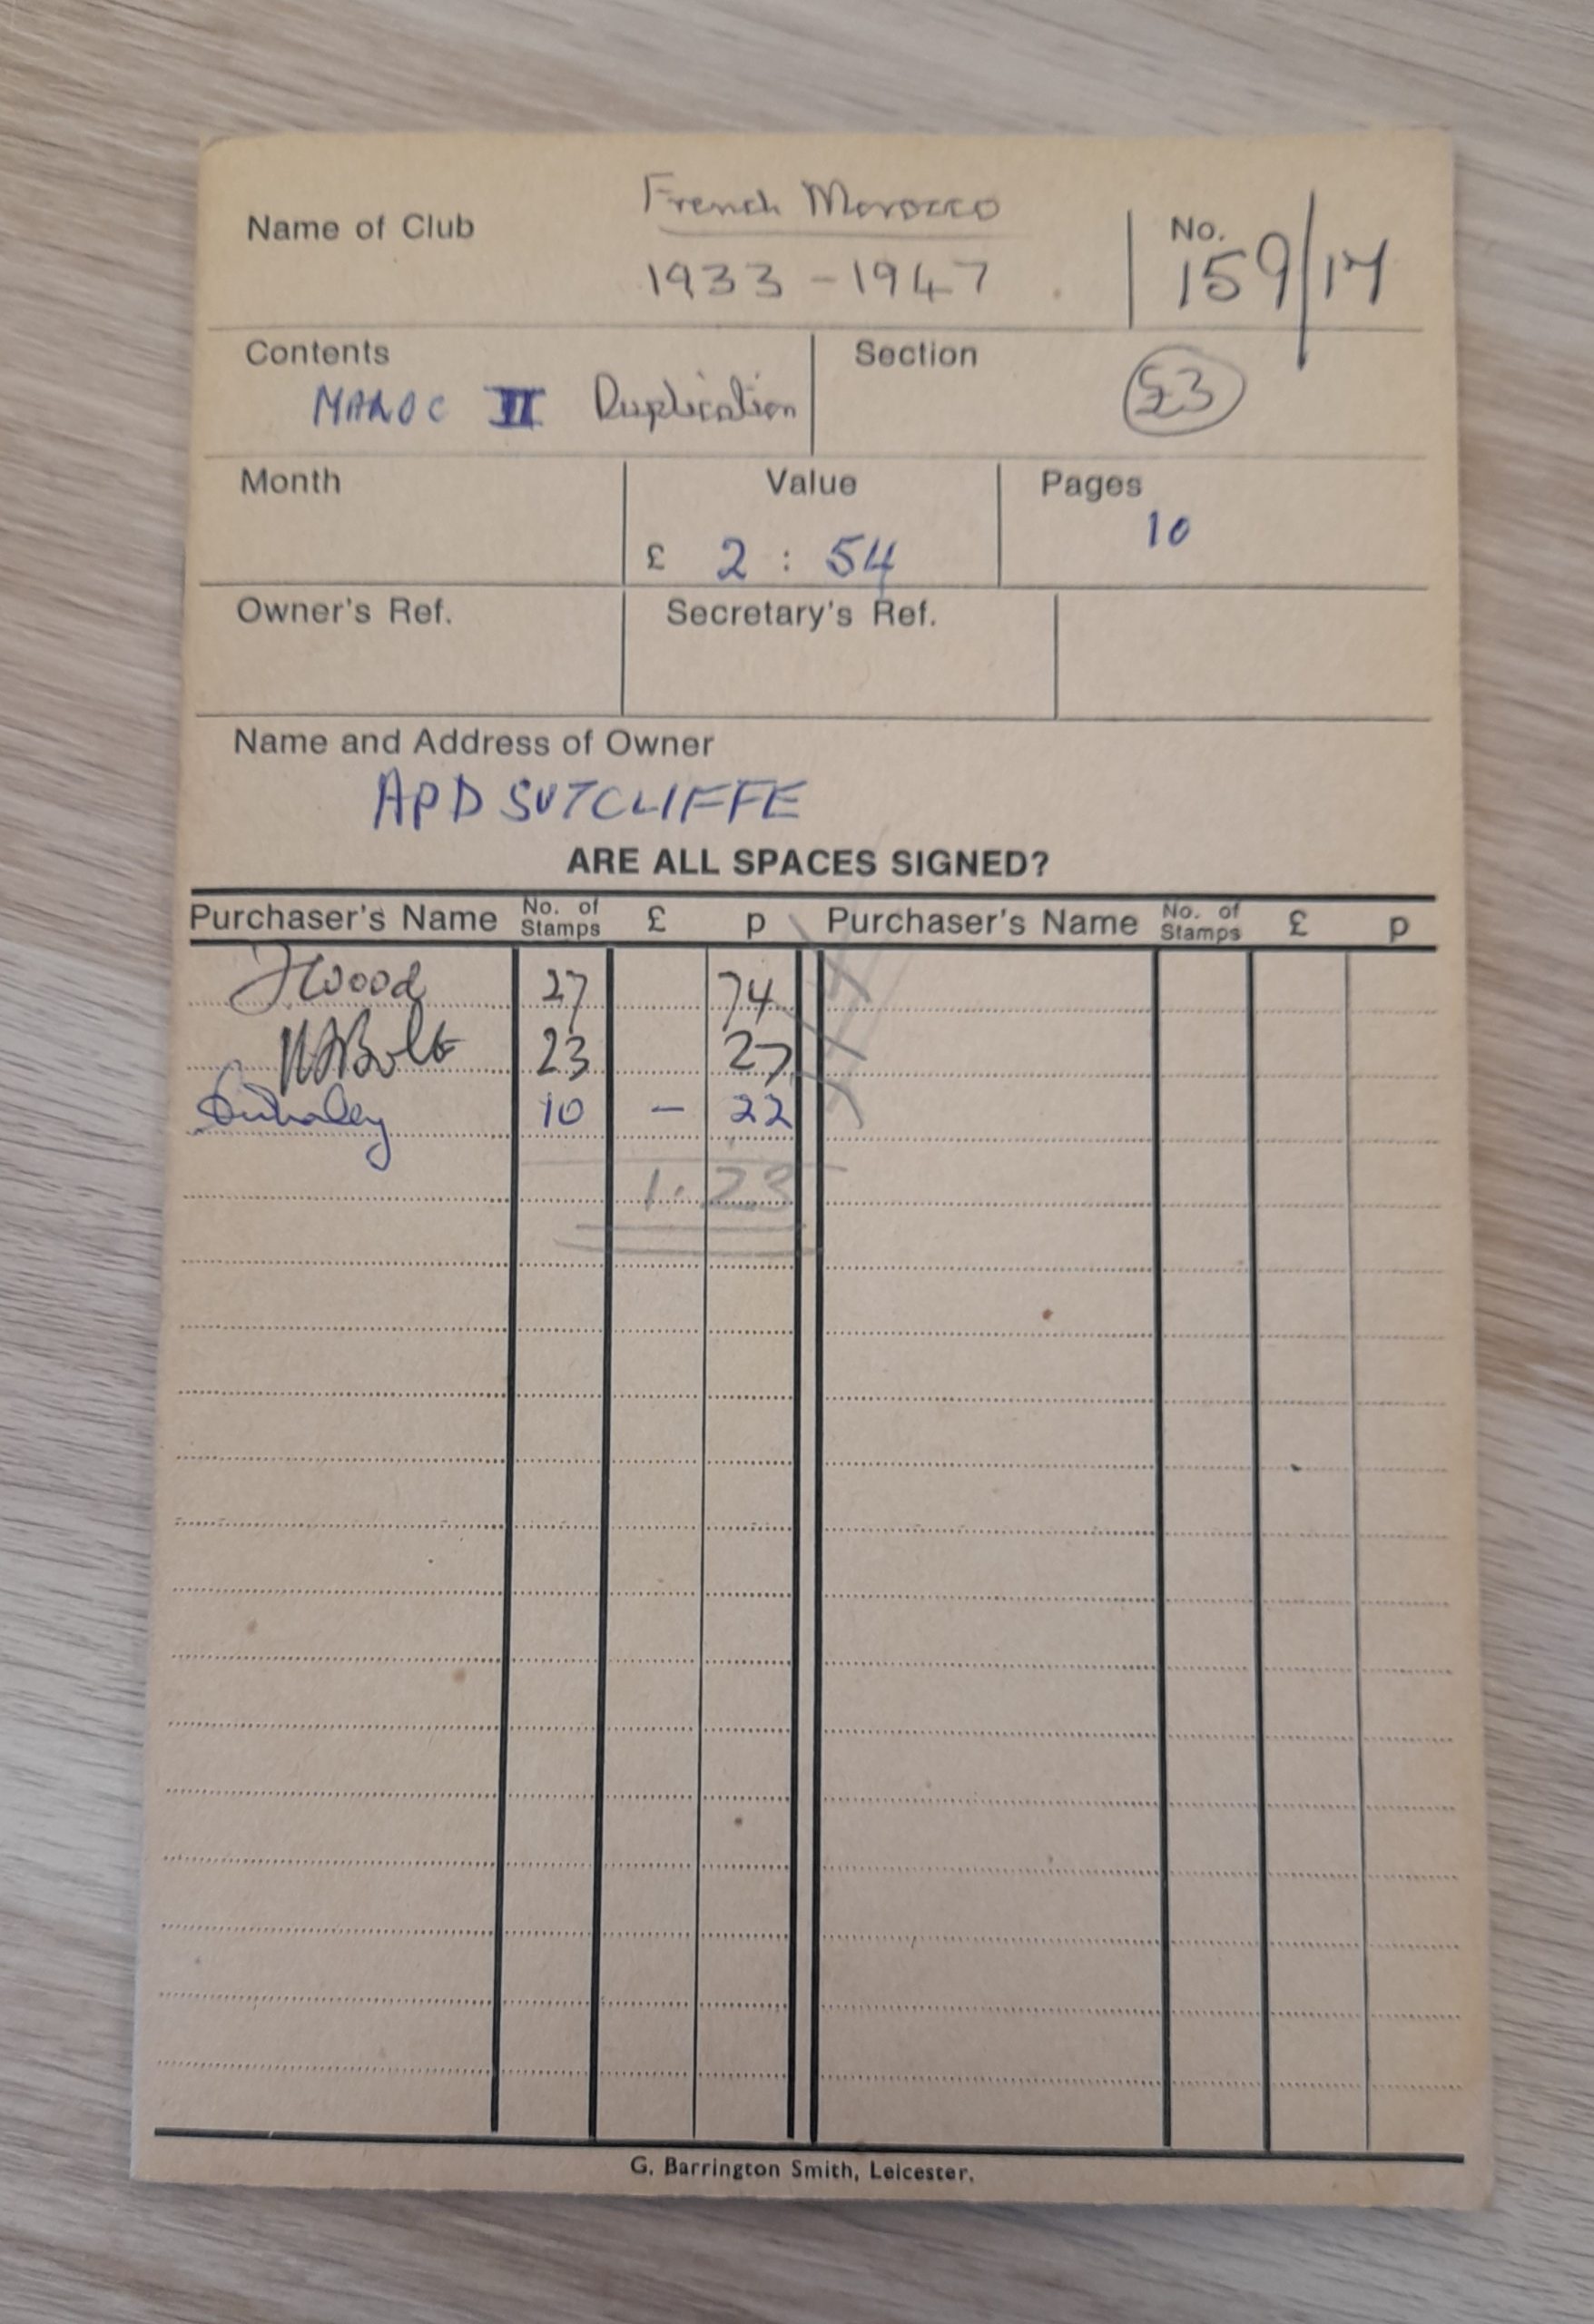 French Morocco
Name of Club
1933 - 1947
No.
159/17
Contents
MAROC II Duplication
Section
£3
Month
Value
£ 2 : 54
Pages
10
Owner's Ref.
Secretary's Ref.
Name and Address of Owner
APD SUTCLIFFE
ARE ALL SPACES SIGNED?
Purchaser's Name No. of Stamps £ p Purchaser's Name No. of Stamps £ p
J Wood 27 74
Bolt 23 27
10 - 22
1.23
G. Barrington Smith, Leicester.